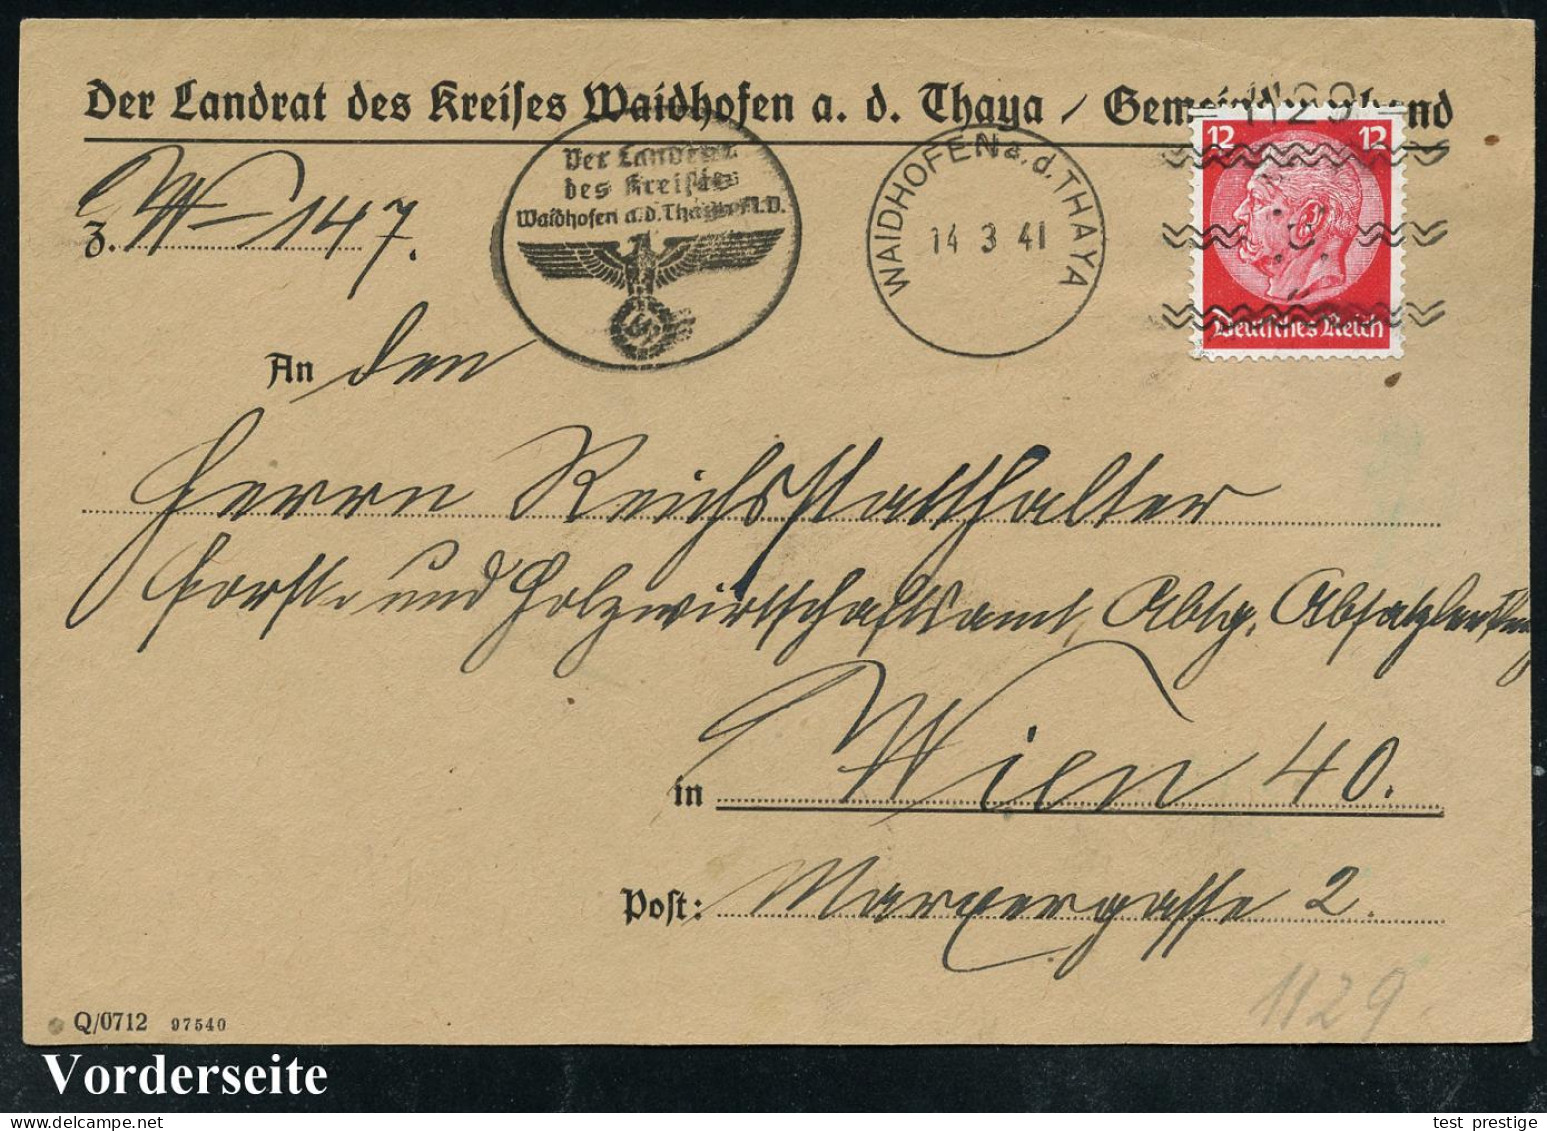 Der Landrat des Kreises Waidhofen a. d. Thaya / Gemeindeverband
1129
Z. W-147.
Der Landrat
des Kreises
Waidhofen a.d. Thaya N.D.
WAIDHOFEN a.d. THAYA
14 3 41
12 12
Deutsches Reich
An den
Herrn Reichsstatthalter
Forst- und Holzwirtschaftsamt, Abtg.
in Wien 40.
Post: Marxergasse 2.
1129.
Q/0712 97540
Vorderseite
test prestige